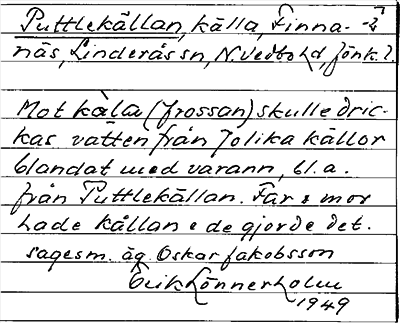 Puttlekällan, källa, Finna-
näs, Linderås sn, N. Vedbo hd, Jönk. l.
Mot kàla (frossan) skulle dric-
kas vatten från 7 olika källor
blandat med varann, bl. a.
från Puttlekällan. Far o mor
hade kållan o de gjorde det.
sagesm. äg. Oskar Jakobsson
Erik Lönnerholm
1949